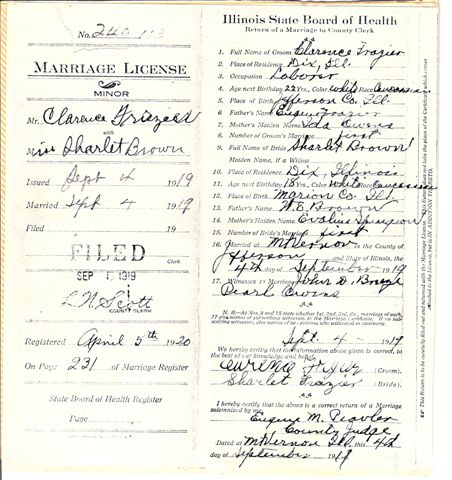 No. 240
MARRIAGE LICENSE
MINOR
Mr. Clarence Frazier
with
Miss Sharlet Brown
Issued Sept 4 1919
Married Sept 4 1919
Filed 19
Clerk
FILED
SEP 1919
L.N. Scott
COUNTY CLERK
Registered April 5th 1920
On Page 231 of Marriage Register
State Board of Health Register
Page
Illinois State Board of Health
Return of a Marriage to County Clerk
1. Full Name of Groom Clarence Frazier
2. Place of Residence Dix, Ill.
3. Occupation Laborer
4. Age next Birthday 22 Yrs., Color white Race Caucasian
5. Place of Birth Jefferson Co. Ill.
6. Father's Name Frazier
7. Mother's Maiden Name Ida Owens
8. Number of Groom's Marriage first
9. Full Name of Bride Sharlet Brown
Maiden Name, if a Widow
10. Place of Residence Dix, Illinois
11. Age next Birthday 18 Yrs., Color white Race Caucasian
12. Place of Birth Marion Co. Ill.
13. Father's Name W.B. Brown
14. Mother's Maiden Name Evaline
15. Number of Bride's Marriage first
16. Married at Mt Vernon in the County of
Jefferson and State of Illinois, the
4th day of September 1919
17. Witnesses to Marriage John D.
Pearl Owens
N. B.—At Nos. 8 and 15 state whether 1st, 2nd, 3rd, etc., marriage of each. At 17 give names of subscribing witnesses to the Marriage Certificate. If no subscribing witnesses, give names of two persons who witnessed the ceremony.
Sept. 4 - 1919
We hereby certify that the information above given is correct, to the best of our knowledge and belief.
(Groom)
Sharlet Frazier (Bride)
I hereby certify that the above is a correct return of a Marriage
solemnized by me.
Eugene M. Peavler
County Judge
Dated at Mt Vernon Ill, this 4th
day of September 1919